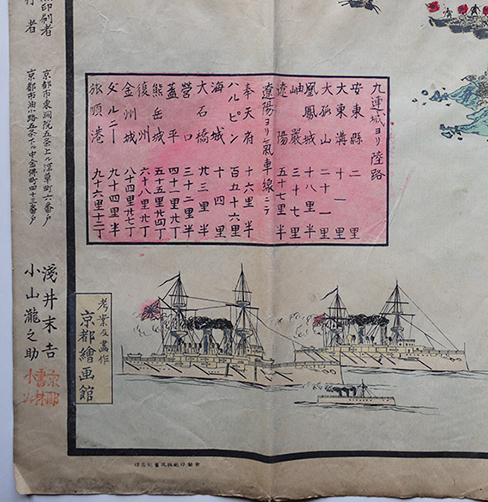 九連城ヨリ陸路
安東縣 二里
大東溝 十一里
大孤山 二十一里
凰鳳城 十八里半
岫巖 三十七里
遼陽 五十七里半
遼陽ヨリ氣車線ニテ
奉天府 十六里半
ハルピン 百五十六里
海城 十四里
大石橋 廿三里半
營口 三十二里半
蓋平 四十一里廿丁
熊岳城 五十五里廿四丁
復州 六十八里廿丁
金州城 八十四里廿七丁
ダルニー 九十四里半
旅順港 九十六里十二丁
考案及畫作
京都繪画館
印刷者 京都市東洞院五条上ル深草町六番戸 淺井末吉
行者 京都市油小路五条下ル中金佛町四十三番戸 小山瀧之助